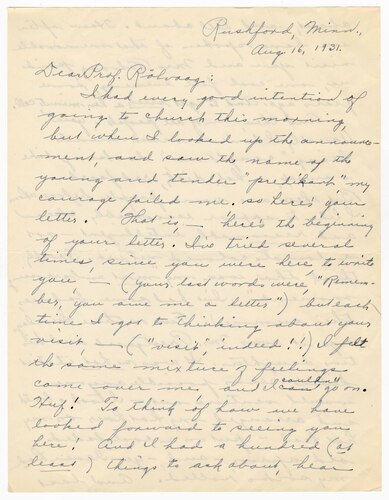 Rushford, Minn.,
Aug 16, 1931.
Dear Prof. Rölvaag:
I had every good intention of
going to church this morning,
but when I looked up the announce-
ment, and saw the name of the
young and tender "predikant", my
courage failed me. so here's your
letter. That is, — here's the beginning
of your letter. I've tried several
times, since you were here to write
you, — (your last words were, "Remem-
ber, you owe me a letter") but each
time I got to thinking about your
visit, — ("visit", indeed!!) I felt
the same mixture of feelings
come over me, and I couldn't go on.
Huf! To think of how we have
looked forward to seeing you
here! And I had a hundred (at
least) things to ask about, hear